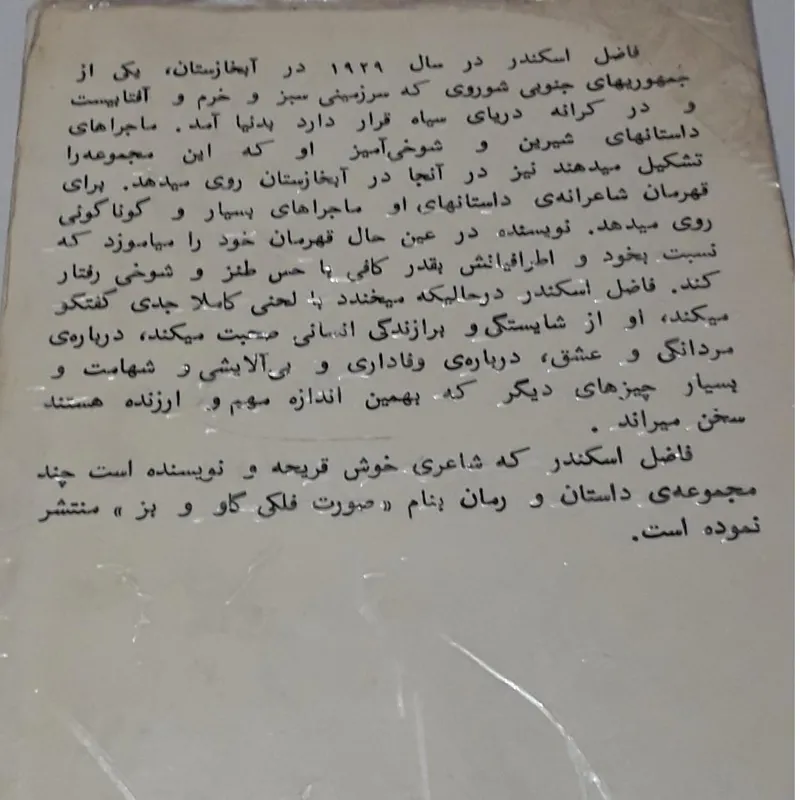 فاضل اسکندر در سال ۱۹۲۹ در آبخازستان، یکی از
جمهوریهای جنوبی شوروی که سرزمینی سبز و خرم و آفتابیست
و در کرانه دریای سیاه قرار دارد بدنیا آمد. ماجراهای
داستانهای شیرین و شوخی‌آمیز او که این مجموعه‌را
تشکیل میدهند نیز در آنجا در آبخازستان روی میدهد. برای
قهرمان شاعرانه‌ی داستانهای او ماجراهای بسیار و گوناگونی
روی میدهد. نویسنده در عین حال قهرمان خود را میاموزد که
نسبت بخود و اطرافیانش بقدر کافی با حس طنز و شوخی رفتار
کند. فاضل اسکندر درحالیکه میخندد با لحنی کاملا جدی گفتگو
میکند، او از شایستگی و برازندگی انسانی صحبت میکند، درباره‌ی
مردانگی و عشق، درباره‌ی وفاداری و بی‌آلایشی و شهامت و
بسیار چیزهای دیگر که بهمین اندازه مهم و ارزنده هستند
سخن میراند .
فاضل اسکندر که شاعری خوش قریحه و نویسنده است چند
مجموعه‌ی داستان و رمان بنام «صورت فلکی گاو و بز» منتشر
نموده است.